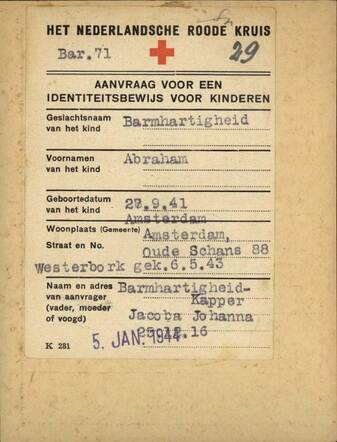 HET NEDERLANDSCHE ROODE KRUIS
Bar.71
29
AANVRAAG VOOR EEN
IDENTITEITSBEWIJS VOOR KINDEREN
Geslachtsnaam van het kind Barmhartigheid
Voornamen van het kind Abraham
Geboortedatum van het kind 27.9.41
Amsterdam
Woonplaats (Gemeente) Amsterdam,
Straat en No. Oude Schans 88
Westerbork gek.6.5.43
Naam en adres van aanvrager (vader, moeder of voogd) Barmhartigheid-
Kapper
Jacoba Johanna
25.12.16
K 281
5. JAN. 1944